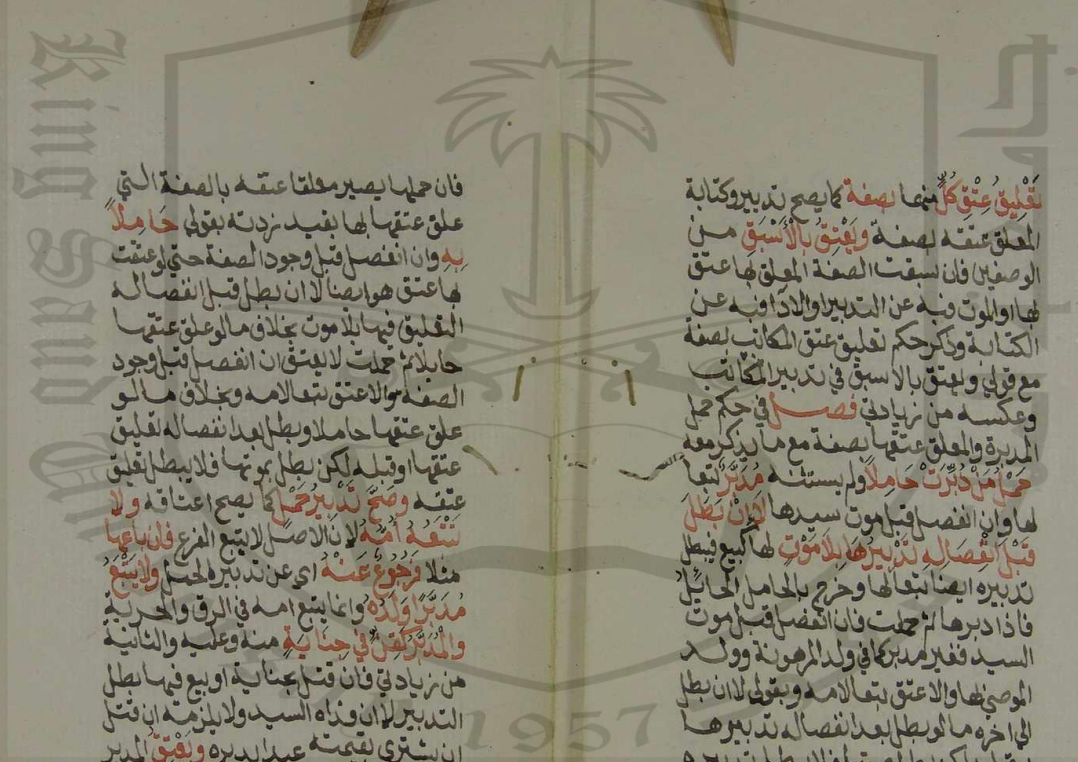 تعليق عتق كل منهما بصفة كما يصح تدبير وكتابة
المعلق عتقه بصفة ويعتق بالأسبق من
الوصفين فان سبقت الصفة المعلق بها عتق
بها او الموت فبه عن التدبير او الاداء فبه عن
الكتابة وذكر حكم تعليق عتق المكاتب بصفة
مع قولي ويعتق بالاسبق في تدبير المكاتب
وعكسه من زيادتي فصل في حكم حمل
المدبرة والمعلق عتقها بصفة مع ما يذكر معه
حمل من دبرت حاملا ولم يستثنه مدبر تبعا
لها وان انفصل قبل موت سيدها لا ان بطل
قبل انفصاله تدبيرها بلا موت لها كبيع فيبطل
تدبيره ايضا تبعا لها وخرج بالحامل الحايل
فاذا دبرها ثم حملت فان انفصل قبل موت
السيد فغير مدبر كما في ولد المرهونة وولد
الموصى بها والا عتق تبعا لامه وبقولي لا ان بطل
الى اخره ما لو بطل بعد انفصاله تدبيرها
فان حملها يصير معلقا عتقه بالصفة التي
علق عتقها بها بقيد زدته بقولي حاملا
به وان انفصل قبل وجود الصفة حتى لو عتقت
بها عتق هو ايضا لا ان بطل قبل انفصاله
التعليق فيها بلا موت بخلاف ما لو علق عتقها
حايلا ثم حملت لا يعتق ان انفصل قبل وجود
الصفة والا عتق تبعا لامه وبخلاف ما لو
علق عتقها حاملا وبطل بعد انفصاله تعليق
عتقها او قبله لكن بطل بموتها فلا يبطل تعليق
عتقه وصح تدبير حمل كما يصح اعتاقه ولا
تتبعه امه لان الاصل لا يتبع الفرع فان باعها
مثلا فرجوع عنه اي عن تدبيره الحمل ولا يتبع
مدبرا ولده وانما يتبع امه في الرق والحرية
والمدبر كقن في جناية منه وعليه والثانية
من زيادتي فان قتل بجناية او بيع فيها بطل
التدبير لا ان فداه السيد ولا يلزمه ان قتل
ان يشترى بقيمته عبدا يدبره ويعتق المدبر